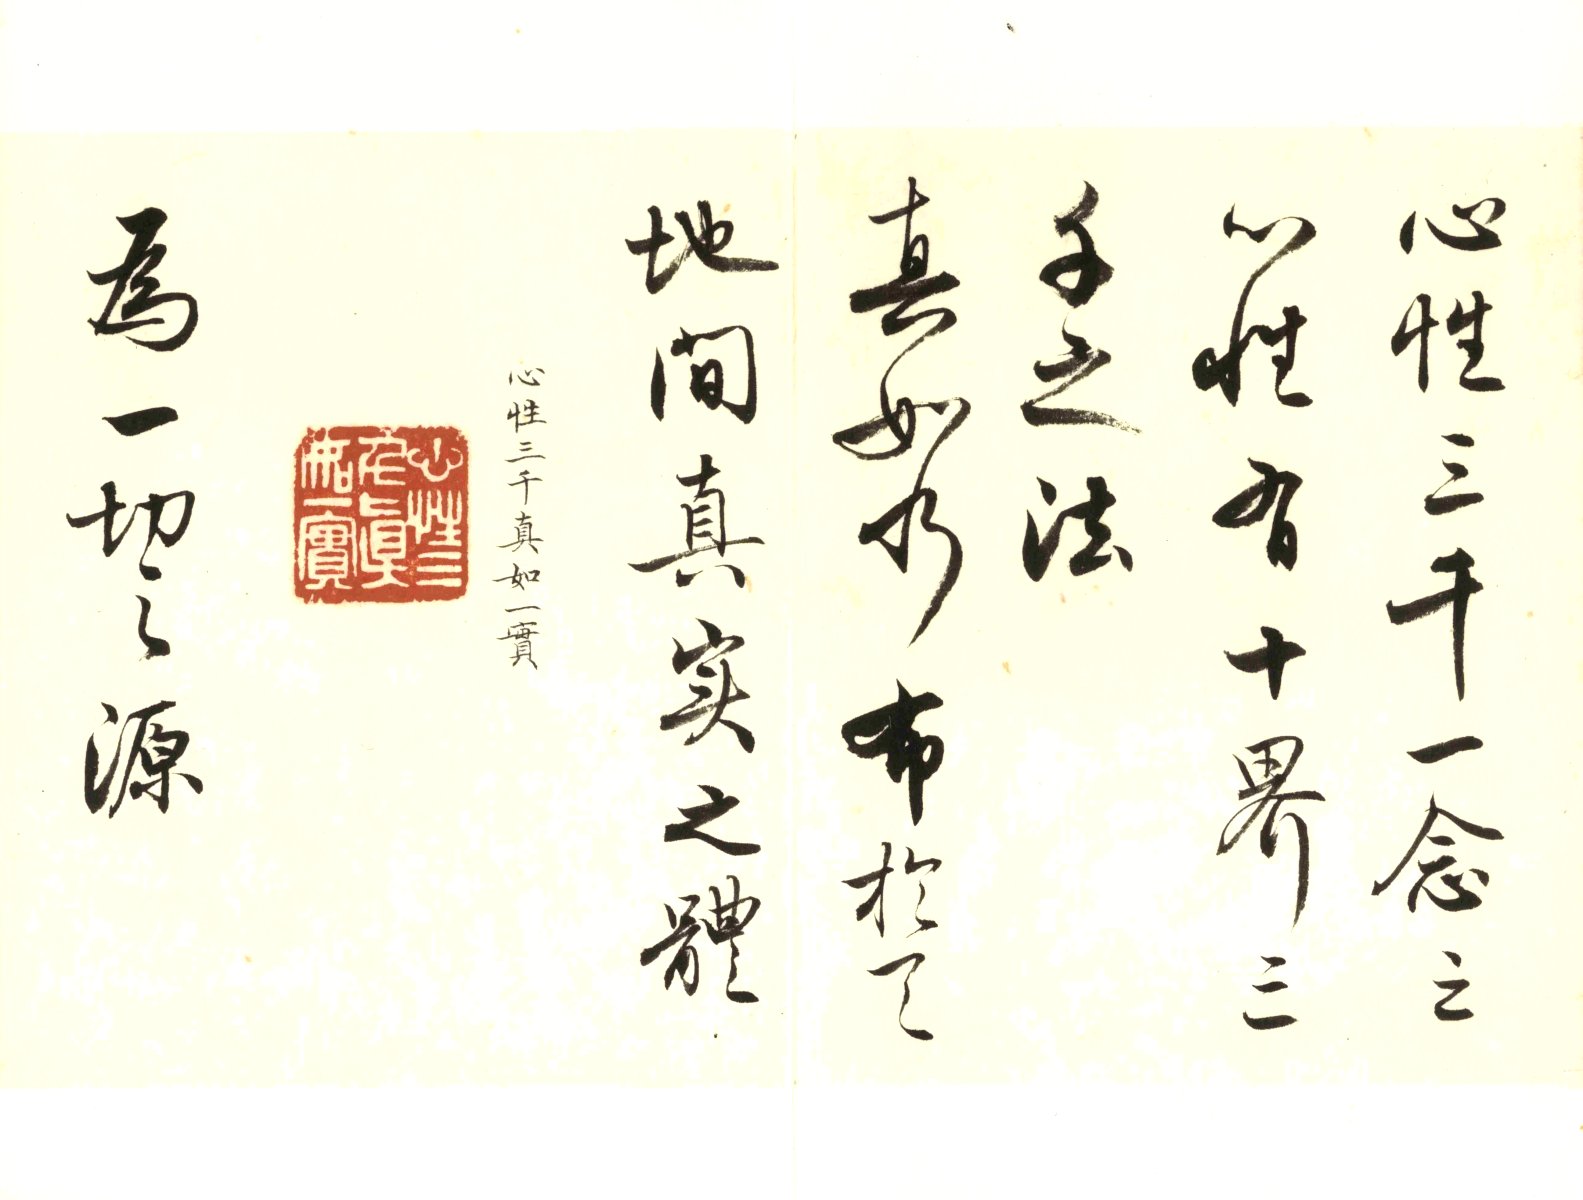 心性三千一念之
心性有十界三
千之法
真如分布於天
地間真実之體
心性三千真如一實
心性三
千真
如一實
為一切之源